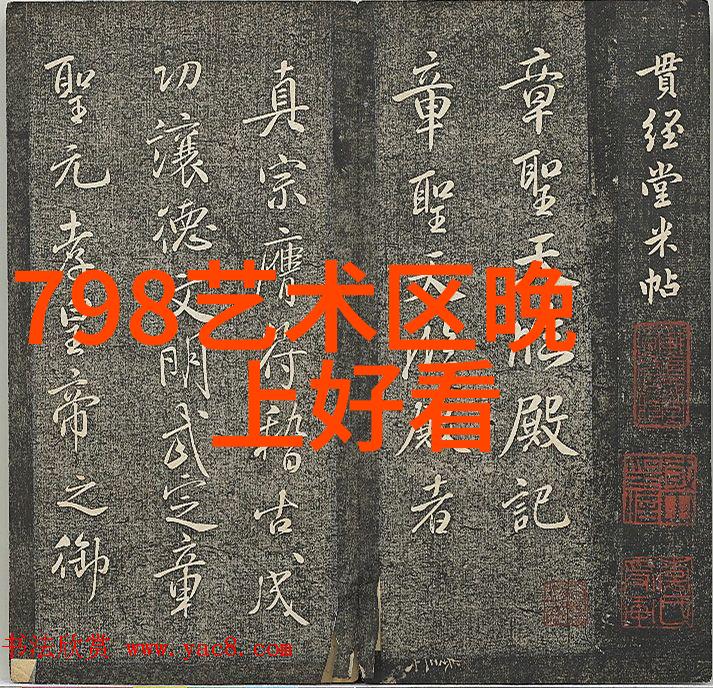 貫經堂米帖
章聖天臨殿記
章聖天臨殿者
真宗膺符稽古成
功讓德文明武定章
聖元孝皇帝之御
798艺术区晚
上好看
书法欣赏 www.yac8.com